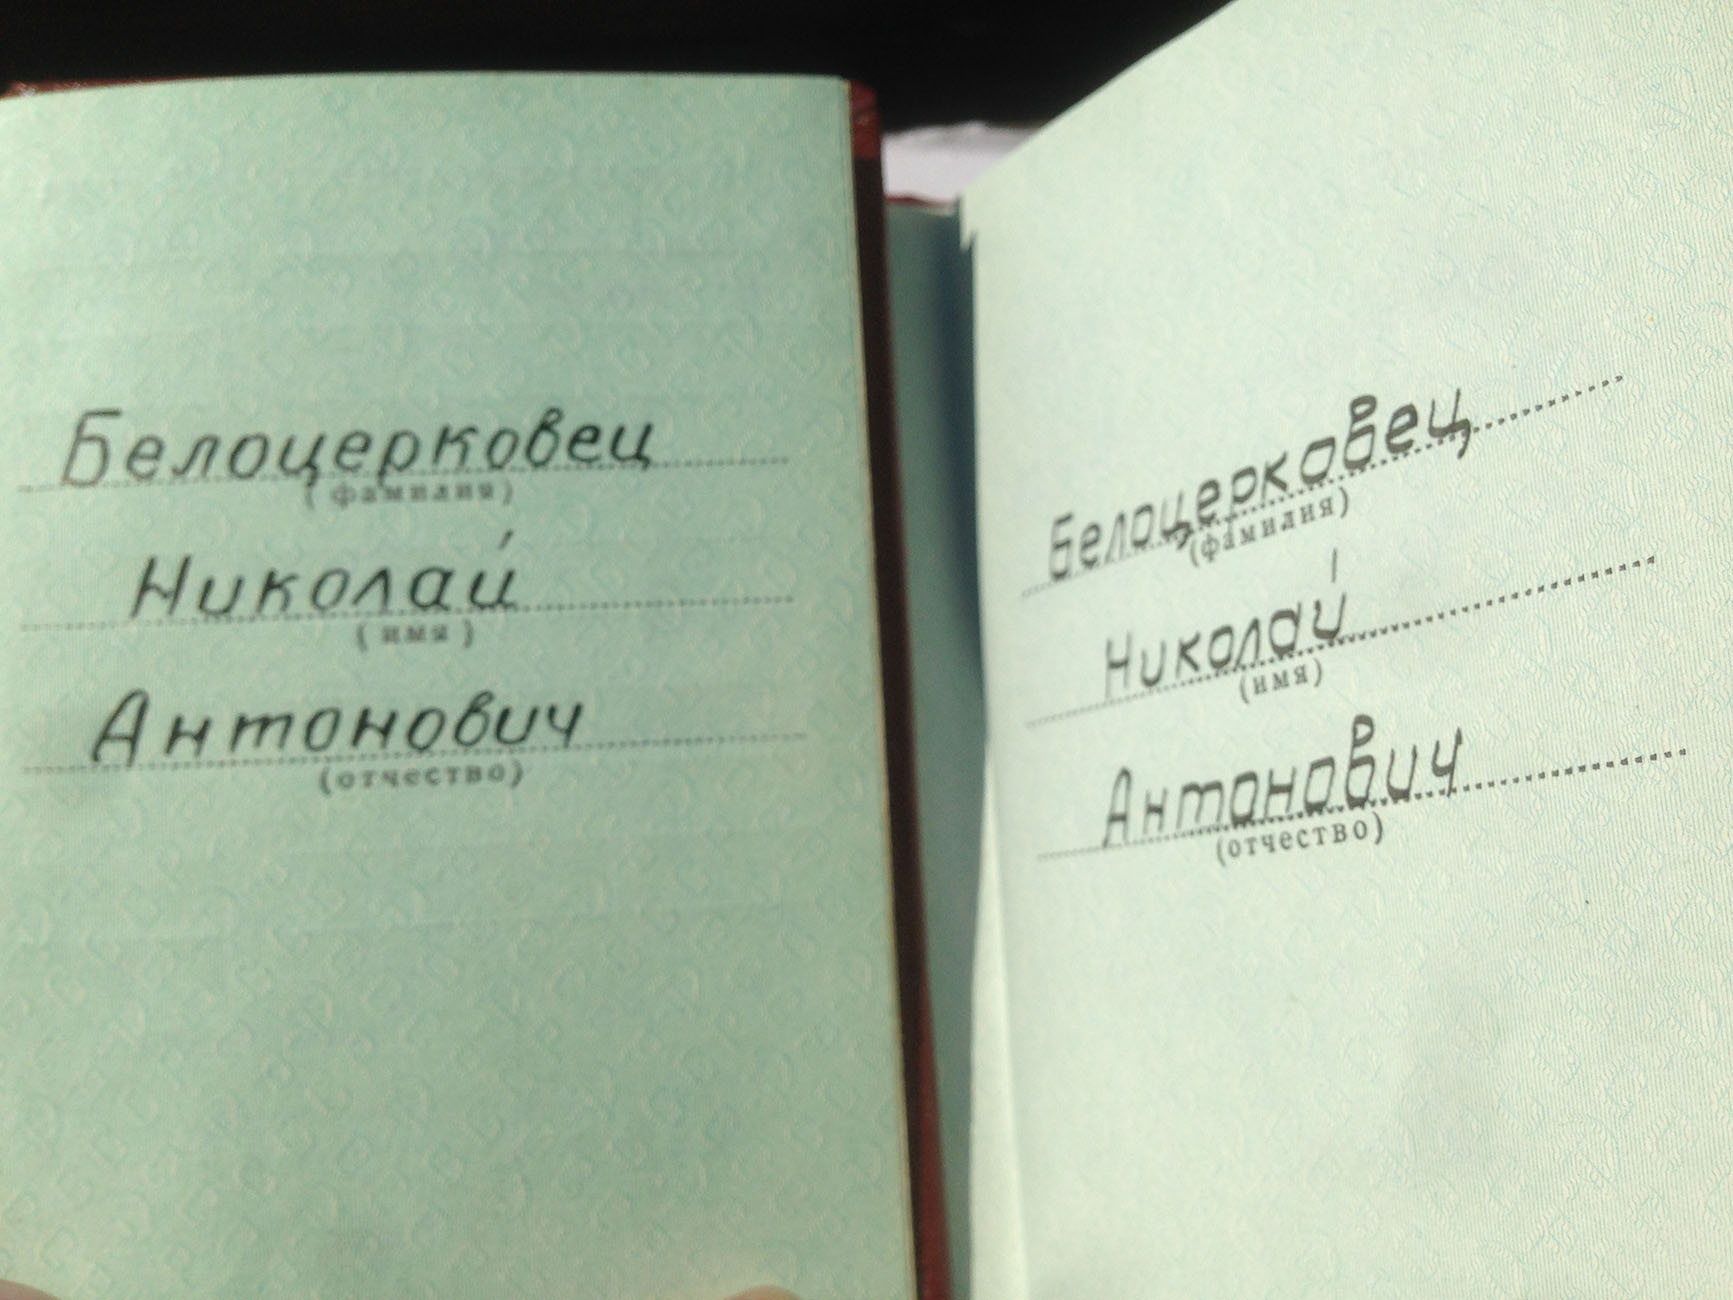 Белоцерковец
(фамилия)
Николай
(имя)
Антонович
(отчество)
Белоцерковец
(фамилия)
Николай
(имя)
Антонович
(отчество)